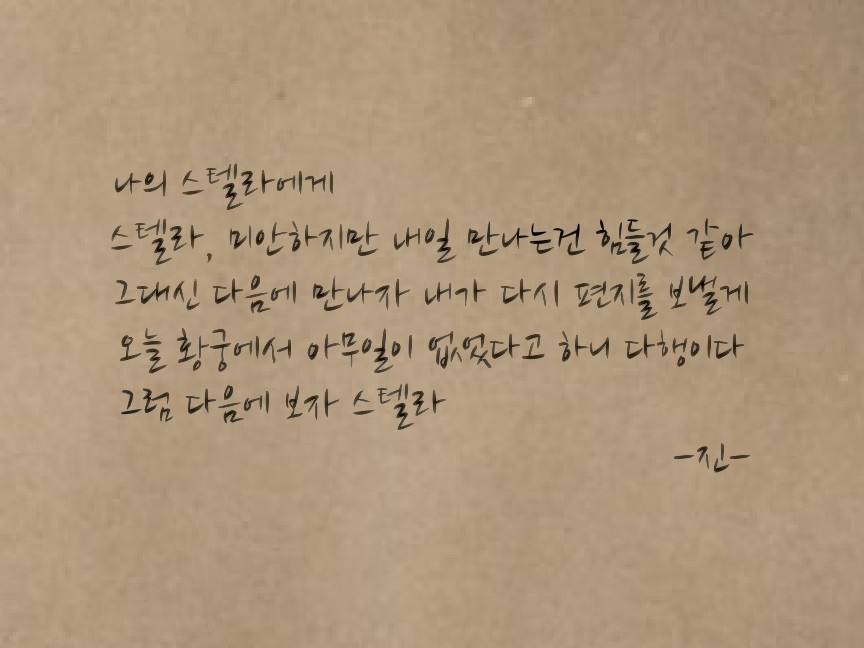 나의 스텔라에게
스텔라, 미안하지만 내일 만나는건 힘들것 같아
그대신 다음에 만나자 내가 다시 편지를 보낼게
오늘 황궁에서 아무일이 없었다고 하니 다행이다
그럼 다음에 보자 스텔라
-진-